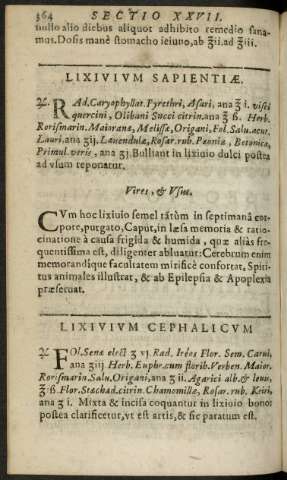 364 SECTIO XXVII.
nullo alio diebus aliquot adhibito remedio sana-
mus. Dosis manè stomacho ieiuno, ab ℥ii. ad ℥iii.
LIXIVIVM SAPIENTIÆ.
℞. RAd. Caryophyllat. Pyrethri, Asari, ana ʒ i. visci
quercini, Olibani Succi citrin. ana ʒ ß. Herb.
Rorismarin. Maioranæ, Melissæ, Origani, Fol. Salu. acut.
Lauri, ana ʒij. Lauendulæ, Rosar. rub. Pæoniæ, Betonicæ,
Primul. veris, ana ʒj. Bulliant in lixiuio dulci postea
ad vsum reponatur.
Vires, & Vsus.
CVm hoc lixiuio semel tātùm in septimanâ cor-
pore, purgato, Caput, in læsa memoria & ratio-
cinatione à causa frigida & humida, quæ aliàs fre-
quentissima est, diligenter abluatur: Cerebrum enim
memorandique facultatem mirificè confortat, Spiri-
tus animales illustrat, & ab Epilepsia & Apoplexia
præseruat.
LIXIVIVM CEPHALICVM
℞ FOl. Senæ elect ʒ vj. Rad. Iréos Flor. Sem. Carui,
ana ʒiij Herb. Euphr. cum florib. Verben. Maior.
Rorismarin. Salu. Origani, ana ʒ ii. Agarici alb. & leuis,
ʒ ß Flor. Stæchad. citrin. Chamomillæ, Rosar. rub. Keiri,
ana ʒ i. Mixta & incisa coquantur in lixiuio bono:
postea clarificetur, vt est artis, & sic paratum est.